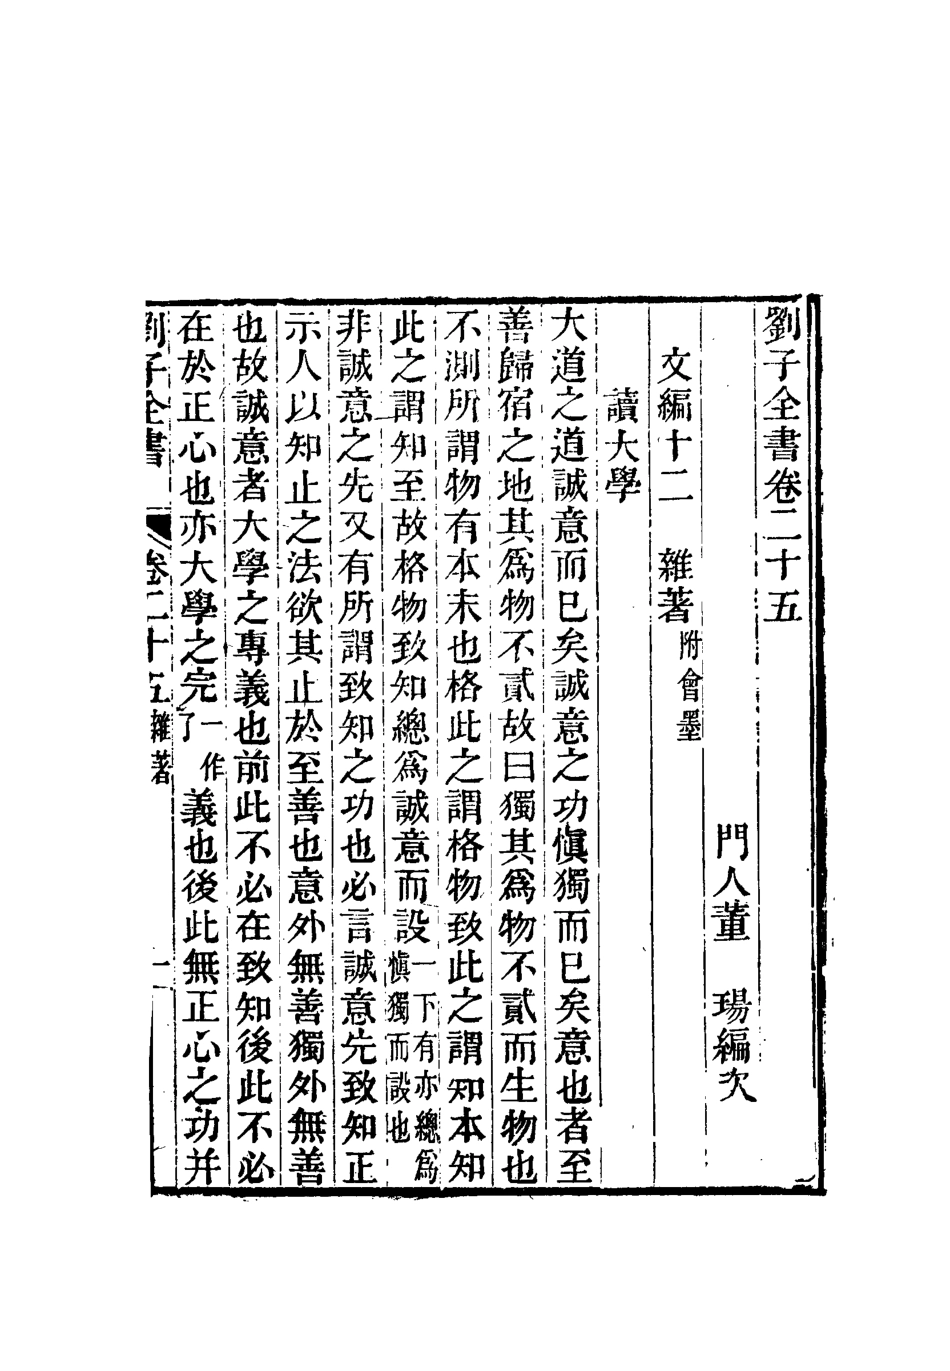 劉子全書卷二十五
門人董　瑒編次
文編十二　雜著附會墨
讀大學
大道之道誠意而已矣誠意之功愼獨而已矣意也者至
善歸宿之地其爲物不貳故曰獨其爲物不貳而生物也
不測所謂物有本末也格此之謂格物致此之謂知本知
此之謂知至故格物致知總爲誠意而設一下有亦總爲愼獨而設也
非誠意之先又有所謂致知之功也必言誠意先致知正
示人以知止之法欲其止於至善也意外無善獨外無善
也故誠意者大學之專義也前此不必在致知後此不必
在於正心也亦大學之完一作了義也後此無正心之功并
劉子全書　卷二十五雜著　一